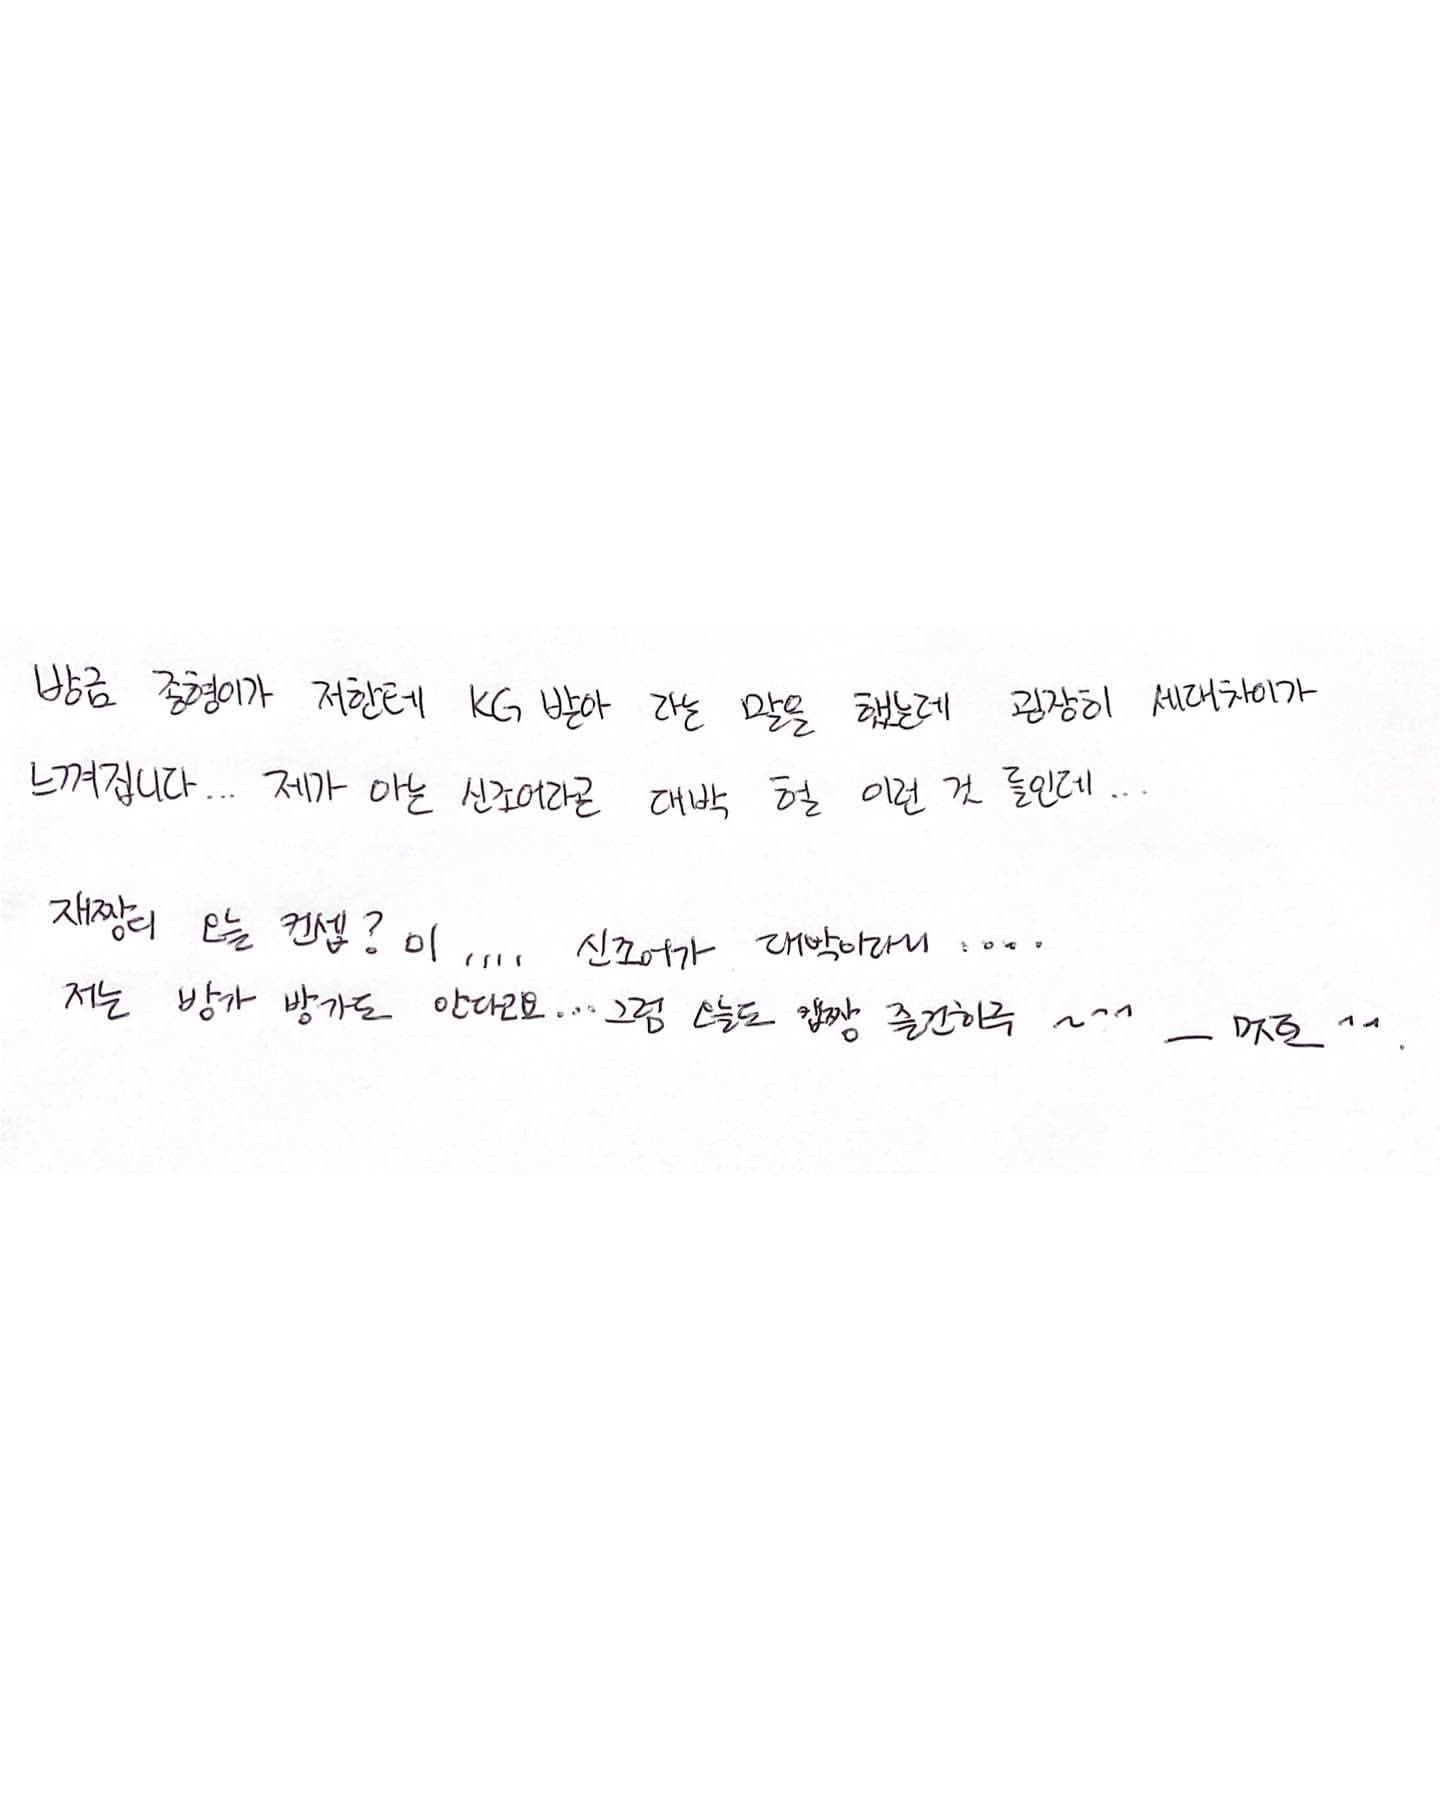 방금 종형이가 저한테 KG 받아 라는 말을 했는데 굉장히 세대차이가
느껴집니다... 제가 아는 신조어라곤 대박 헐 이런 것 들인데...
재짱디 오늘 컨셉? 이 ,,,,, 신조어가 대박이라니 :....
저는 방가 방가도 안다고요... 그럼 오늘도 캡짱 즐건하루 ~^^ ㅡ ^^.